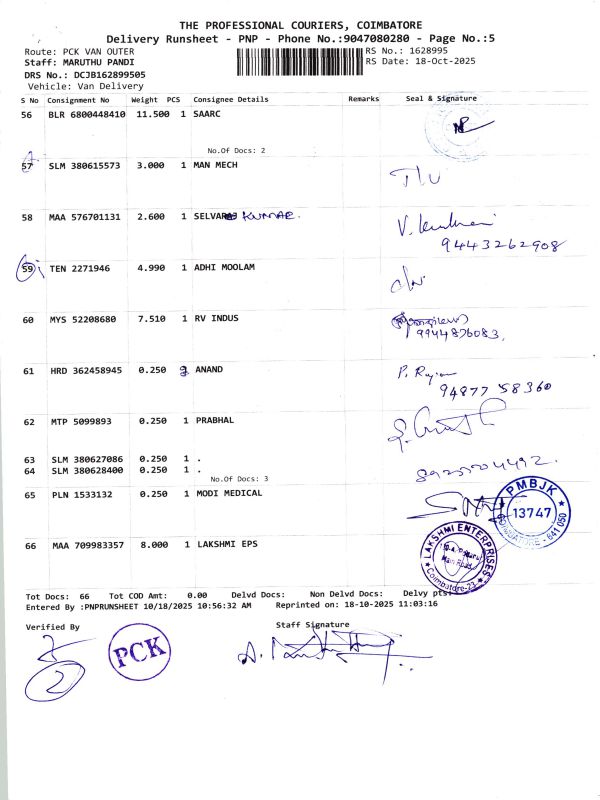 THE PROFESSIONAL COURIERS, COIMBATORE
Delivery Runsheet - PNP - Phone No.:9047080280 - Page No.:5
Route: PCK VAN OUTER RS No.: 1628995
Staff: MARUTHU PANDI RS Date: 18-Oct-2025
DRS No.: DCJB162899505
Vehicle: Van Delivery
S No Consignment No Weight PCS Consignee Details Remarks Seal & Signature
56 BLR 6800448410 11.500 1 SAARC
No.Of Docs: 2
57 SLM 380615573 3.000 1 MAN MECH
58 MAA 576701131 2.600 1 SELVARAJ KUMAR.
9443262908
59 TEN 2271946 4.990 1 ADHI MOOLAM
60 MYS 52208680 7.510 1 RV INDUS
9944876083,
61 HRD 362458945 0.250 ANAND
P. Rajan
94877 58360
62 MTP 5099893 0.250 1 PRABHAL
63 SLM 380627086 0.250 1 .
64 SLM 380628400 0.250 1 .
No.Of Docs: 3
65 PLN 1533132 0.250 1 MODI MEDICAL
PMBJK
13747
COIMBATORE - 641 050
66 MAA 709983357 8.000 1 LAKSHMI EPS
LAKSHMI ENTERPRISES
Main Road,
Coimbatore-23
Tot Docs: 66 Tot COD Amt: 0.00 Delvd Docs: Non Delvd Docs: Delvy pts:
Entered By :PNPRUNSHEET 10/18/2025 10:56:32 AM Reprinted on: 18-10-2025 11:03:16
Verified By Staff Signature
PCK
2